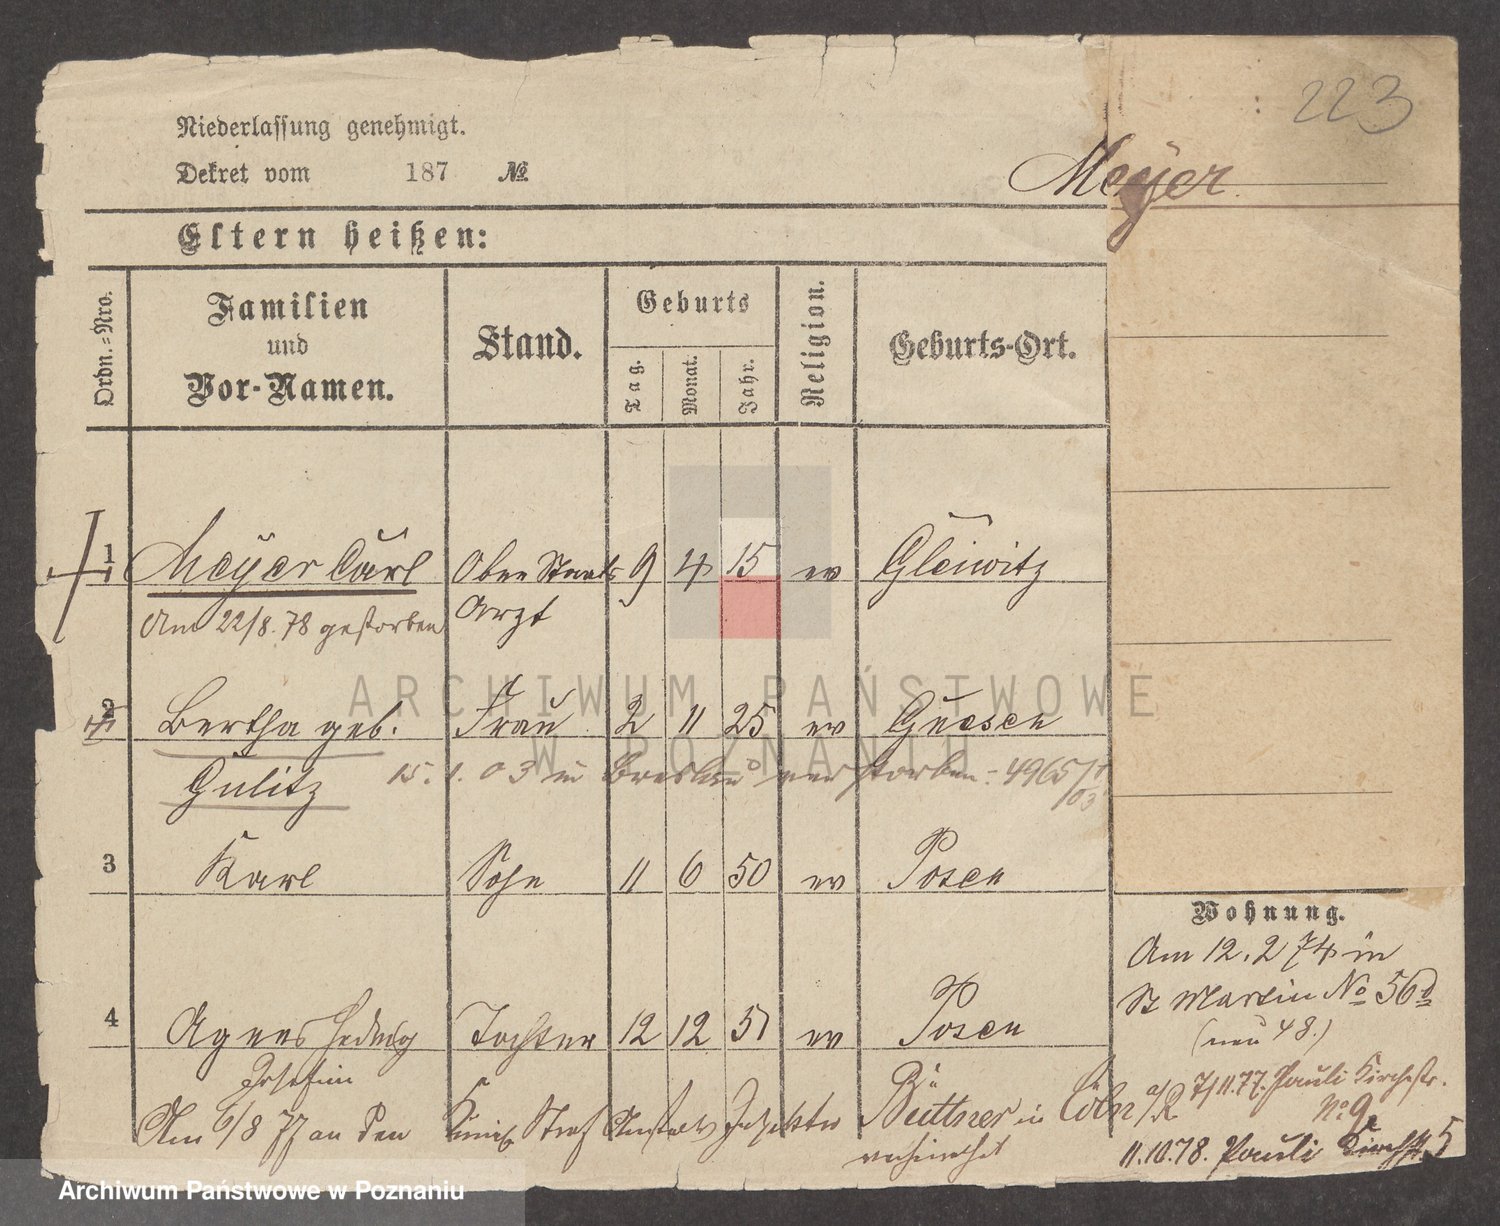 223
Niederlassung genehmigt.
Dekret vom 187 №
Meyer.
Eltern heißen:
Ordn.=Nro.
Familien
und
Vor-Namen.
Stand.
Geburts
Tag.
Monat.
Jahr.
Religion.
Geburts-Ort.
1 Meyer Carl Ober Staabs 9 4 15 ev Gleiwitz
Arzt
Am 22/8.78 gestorben
2 Bertha geb. Frau 2 11 25 ev Gnesen
Gulitz 15.1.03 in Breslau verstorben = 4965/03
3 Karl Sohn 11 6 50 ev Posen
4 Agnes Hedwig Tochter 12 12 51 ev Posen
Josefine
Am 6/8 77 an den Königl Straf Anstalts Inspektor Büttner in Cöln a/R
verheirathet
Wohnung.
Am 12.2 74 in
St Martin No 56d
(neu 48.)
7/11.77. Pauli Kirchstr.
No 9
11.10.78. Pauli Kirchstr. 5
ARCHIWUM PAŃSTWOWE
W POZNANIU
Archiwum Państwowe w Poznaniu